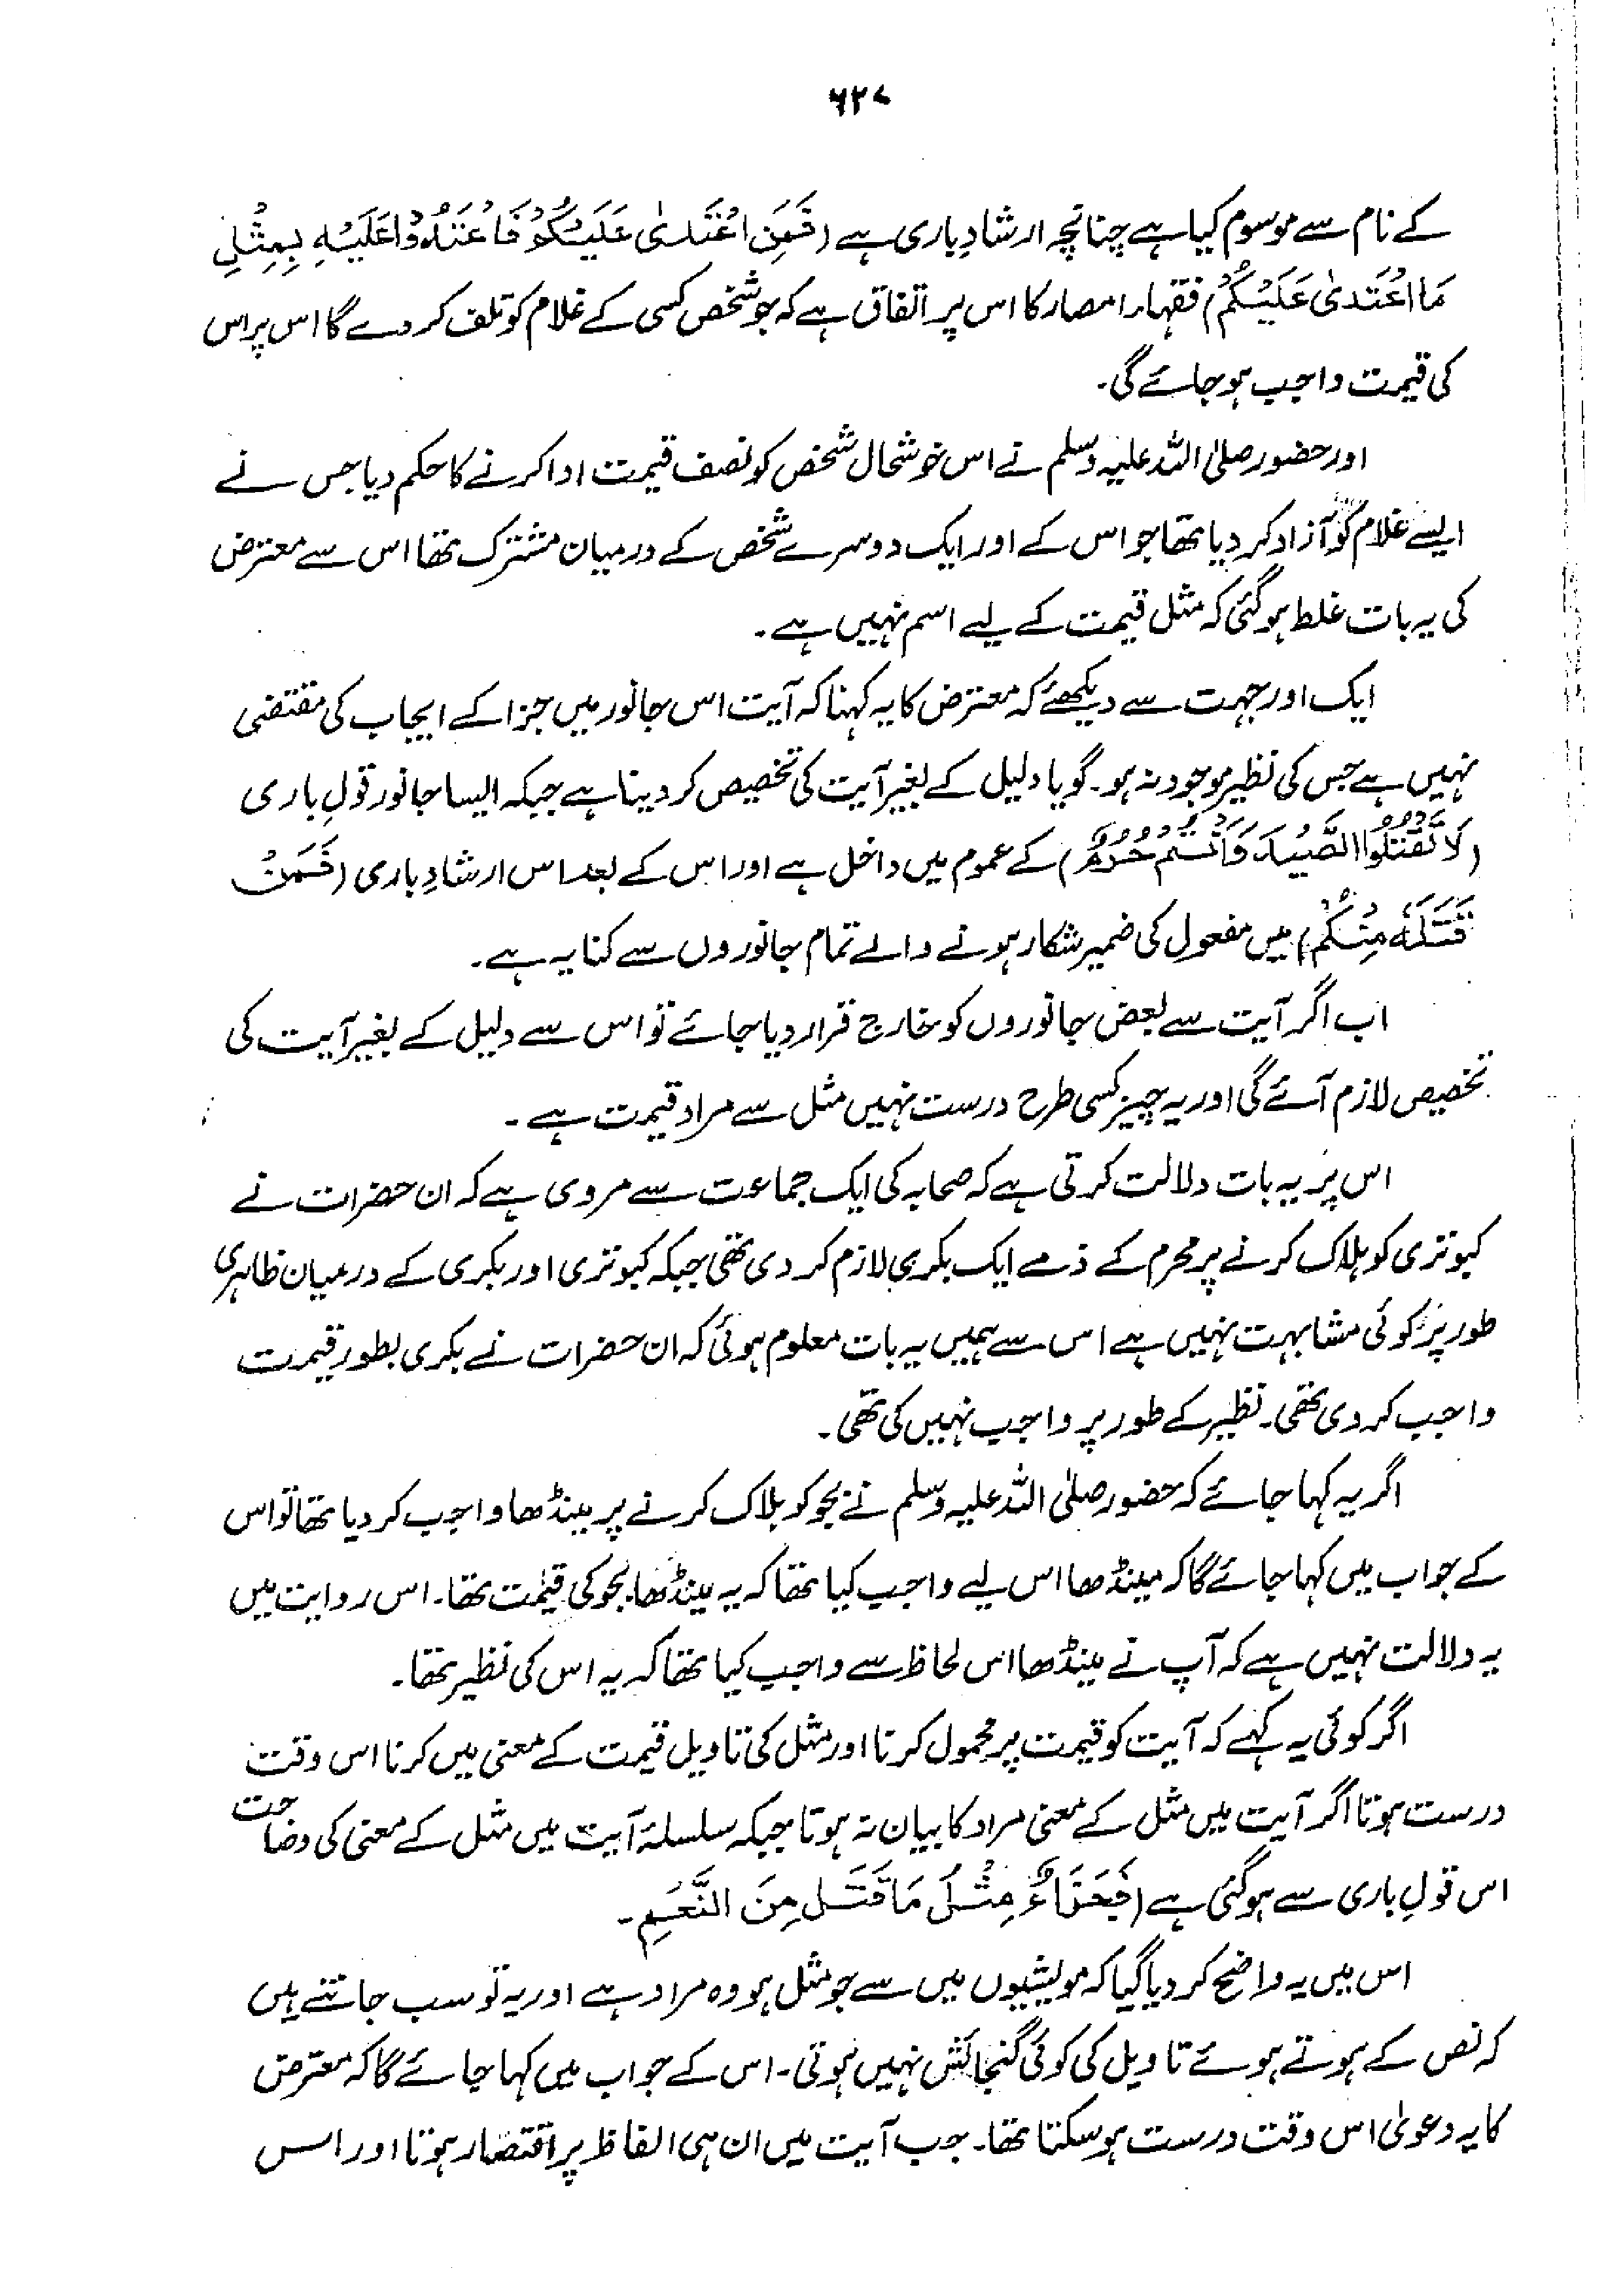 ۶۲۷
کے نام سے موسوم کیا ہے چنانچہ ارشادِ باری ہے (فَمَنِ اعْتَدٰى عَلَيْكُمْ فَاعْتَدُوْا عَلَيْهِ بِمِثْلِ
مَا اعْتَدٰى عَلَيْكُمْ) فقہاء امصار کا اس پر اتفاق ہے کہ جو شخص کسی کے غلام کو تلف کر دے گا اس پر اس
کی قیمت واجب ہو جائے گی۔
اور حضور صلی اللہ علیہ وسلم نے اس خوشحال شخص کو نصف قیمت ادا کرنے کا حکم دیا جس نے
ایسے غلام کو آزاد کر دیا تھا جو اس کے اور ایک دوسرے شخص کے درمیان مشترک تھا اس سے معترض
کی یہ بات غلط ہو گئی کہ مثل قیمت کے لیے اسم نہیں ہے۔
ایک اور جہت سے دیکھئے کہ معترض کا یہ کہنا کہ آیت اس جانور میں جزا کے ایجاب کی مقتضی
نہیں ہے جس کی نظیر موجود نہ ہو۔ گویا دلیل کے بغیر آیت کی تخصیص کر دینا ہے جبکہ ایسا جانور قولِ باری
(لَا تَقْتُلُوا الصَّيْدَ وَاَنْتُمْ حُرُمٌ) کے عموم میں داخل ہے اور اس کے بعد اس ارشادِ باری (فَمَنْ
قَتَلَهٗ مِنْكُمْ) میں مفعول کی ضمیر شکار ہونے والے تمام جانوروں سے کنایہ ہے۔
اب اگر آیت سے بعض جانوروں کو خارج قرار دیا جائے تو اس سے دلیل کے بغیر آیت کی
تخصیص لازم آئے گی اور یہ چیز کسی طرح درست نہیں مثل سے مراد قیمت ہے۔
اس پر یہ بات دلالت کرتی ہے کہ صحابہ کی ایک جماعت سے مروی ہے کہ ان حضرات نے
کبوتری کو ہلاک کرنے پر محرم کے ذمے ایک بکری لازم کر دی تھی جبکہ کبوتری اور بکری کے درمیان ظاہری
طور پر کوئی مشابہت نہیں ہے اس سے ہمیں یہ بات معلوم ہوئی کہ ان حضرات نے بکری بطور قیمت
واجب کر دی تھی۔ نظیر کے طور پر واجب نہیں کی تھی۔
اگر یہ کہا جائے کہ حضور صلی اللہ علیہ وسلم نے بجو کو ہلاک کرنے پر مینڈھا واجب کر دیا تھا تو اس
کے جواب میں کہا جائے گا کہ مینڈھا اس لیے واجب کیا تھا کہ یہ مینڈھا بجو کی قیمت تھا۔ اس روایت میں
یہ دلالت نہیں ہے کہ آپ نے مینڈھا اس لحاظ سے واجب کیا تھا کہ یہ اس کی نظیر تھا۔
اگر کوئی یہ کہے کہ آیت کو قیمت پر محمول کرنا اور مثل کی تاویل قیمت کے معنی میں کرنا اس وقت
درست ہوتا اگر آیت میں مثل کے معنی مراد کا بیان نہ ہوتا جبکہ سلسلۂ آیت میں مثل کے معنی کی وضاحت
اس قولِ باری سے ہو گئی ہے (فَجَزَاءٌ مِثْلُ مَا قَتَلَ مِنَ النَّعَمِ۔
اس میں یہ واضح کر دیا گیا کہ مویشیوں میں سے جو مثل ہو وہ مراد ہے اور یہ تو سب جانتے ہیں
کہ نص کے ہوتے ہوئے تاویل کی کوئی گنجائش نہیں ہوتی۔ اس کے جواب میں کہا جائے گا کہ معترض
کا یہ دعویٰ اس وقت درست ہو سکتا تھا۔ جب آیت میں ان ہی الفاظ پر اقتصار ہوتا اور اس